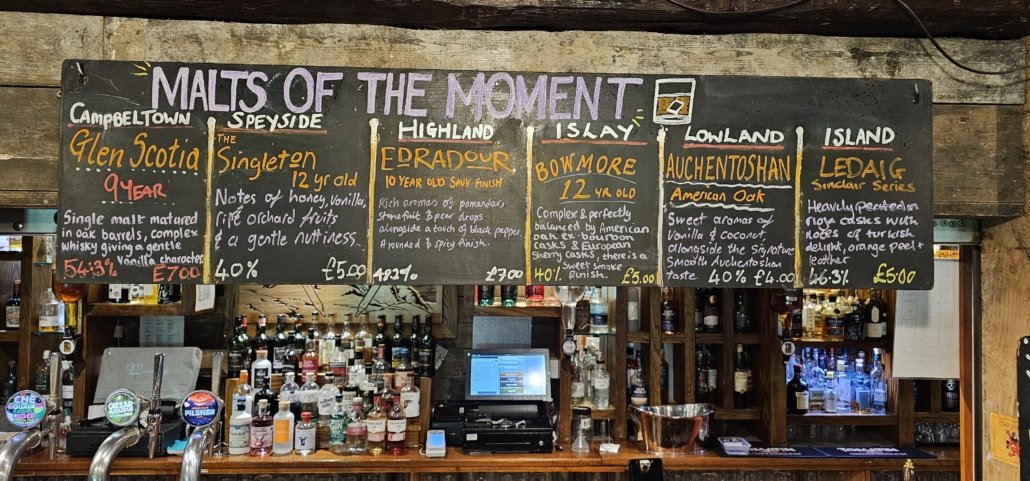 MALTS OF THE MOMENT
CAMPBELTOWN
Glen Scotia
9 YEAR
Single malt matured
in oak barrels, complex
whisky giving a gentle
vanilla character
54.3% £7.00
SPEYSIDE
THE
Singleton
12 yr old
Notes of honey, Vanilla,
ripe orchard fruits
& a gentle nuttiness.
40% £5.00
HIGHLAND
EDRADOUR
10 YEAR OLD SAUV FINISH
Rich aromas of pomander,
Stonefruit & pear drops
alongside a touch of black pepper.
A rounded & spicy finish.
48.2% £7.00
ISLAY
BOWMORE
12 YR OLD
Complex & perfectly
balanced by American
oak ex-bourbon
casks & European
Sherry casks, there is a
Sweet smoke
finish.
40% £5.00
LOWLAND
AUCHENTOSHAN
American Oak
Sweet aromas of
Vanilla & coconut,
alongside the Signature
Smooth Auchentoshan
taste 40% £4.00
ISLAND
LEDAIG
Sinclair Series
Heavily peated on
rioja casks with
notes of turkish
delight, orange peel +
leather
46.3% £5.00
PILSNER